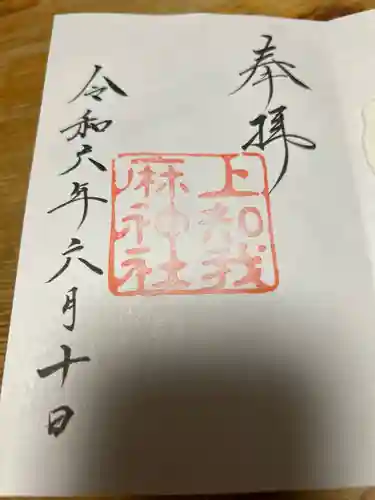 奉拝
上知我
麻神社
令和六年六月十日